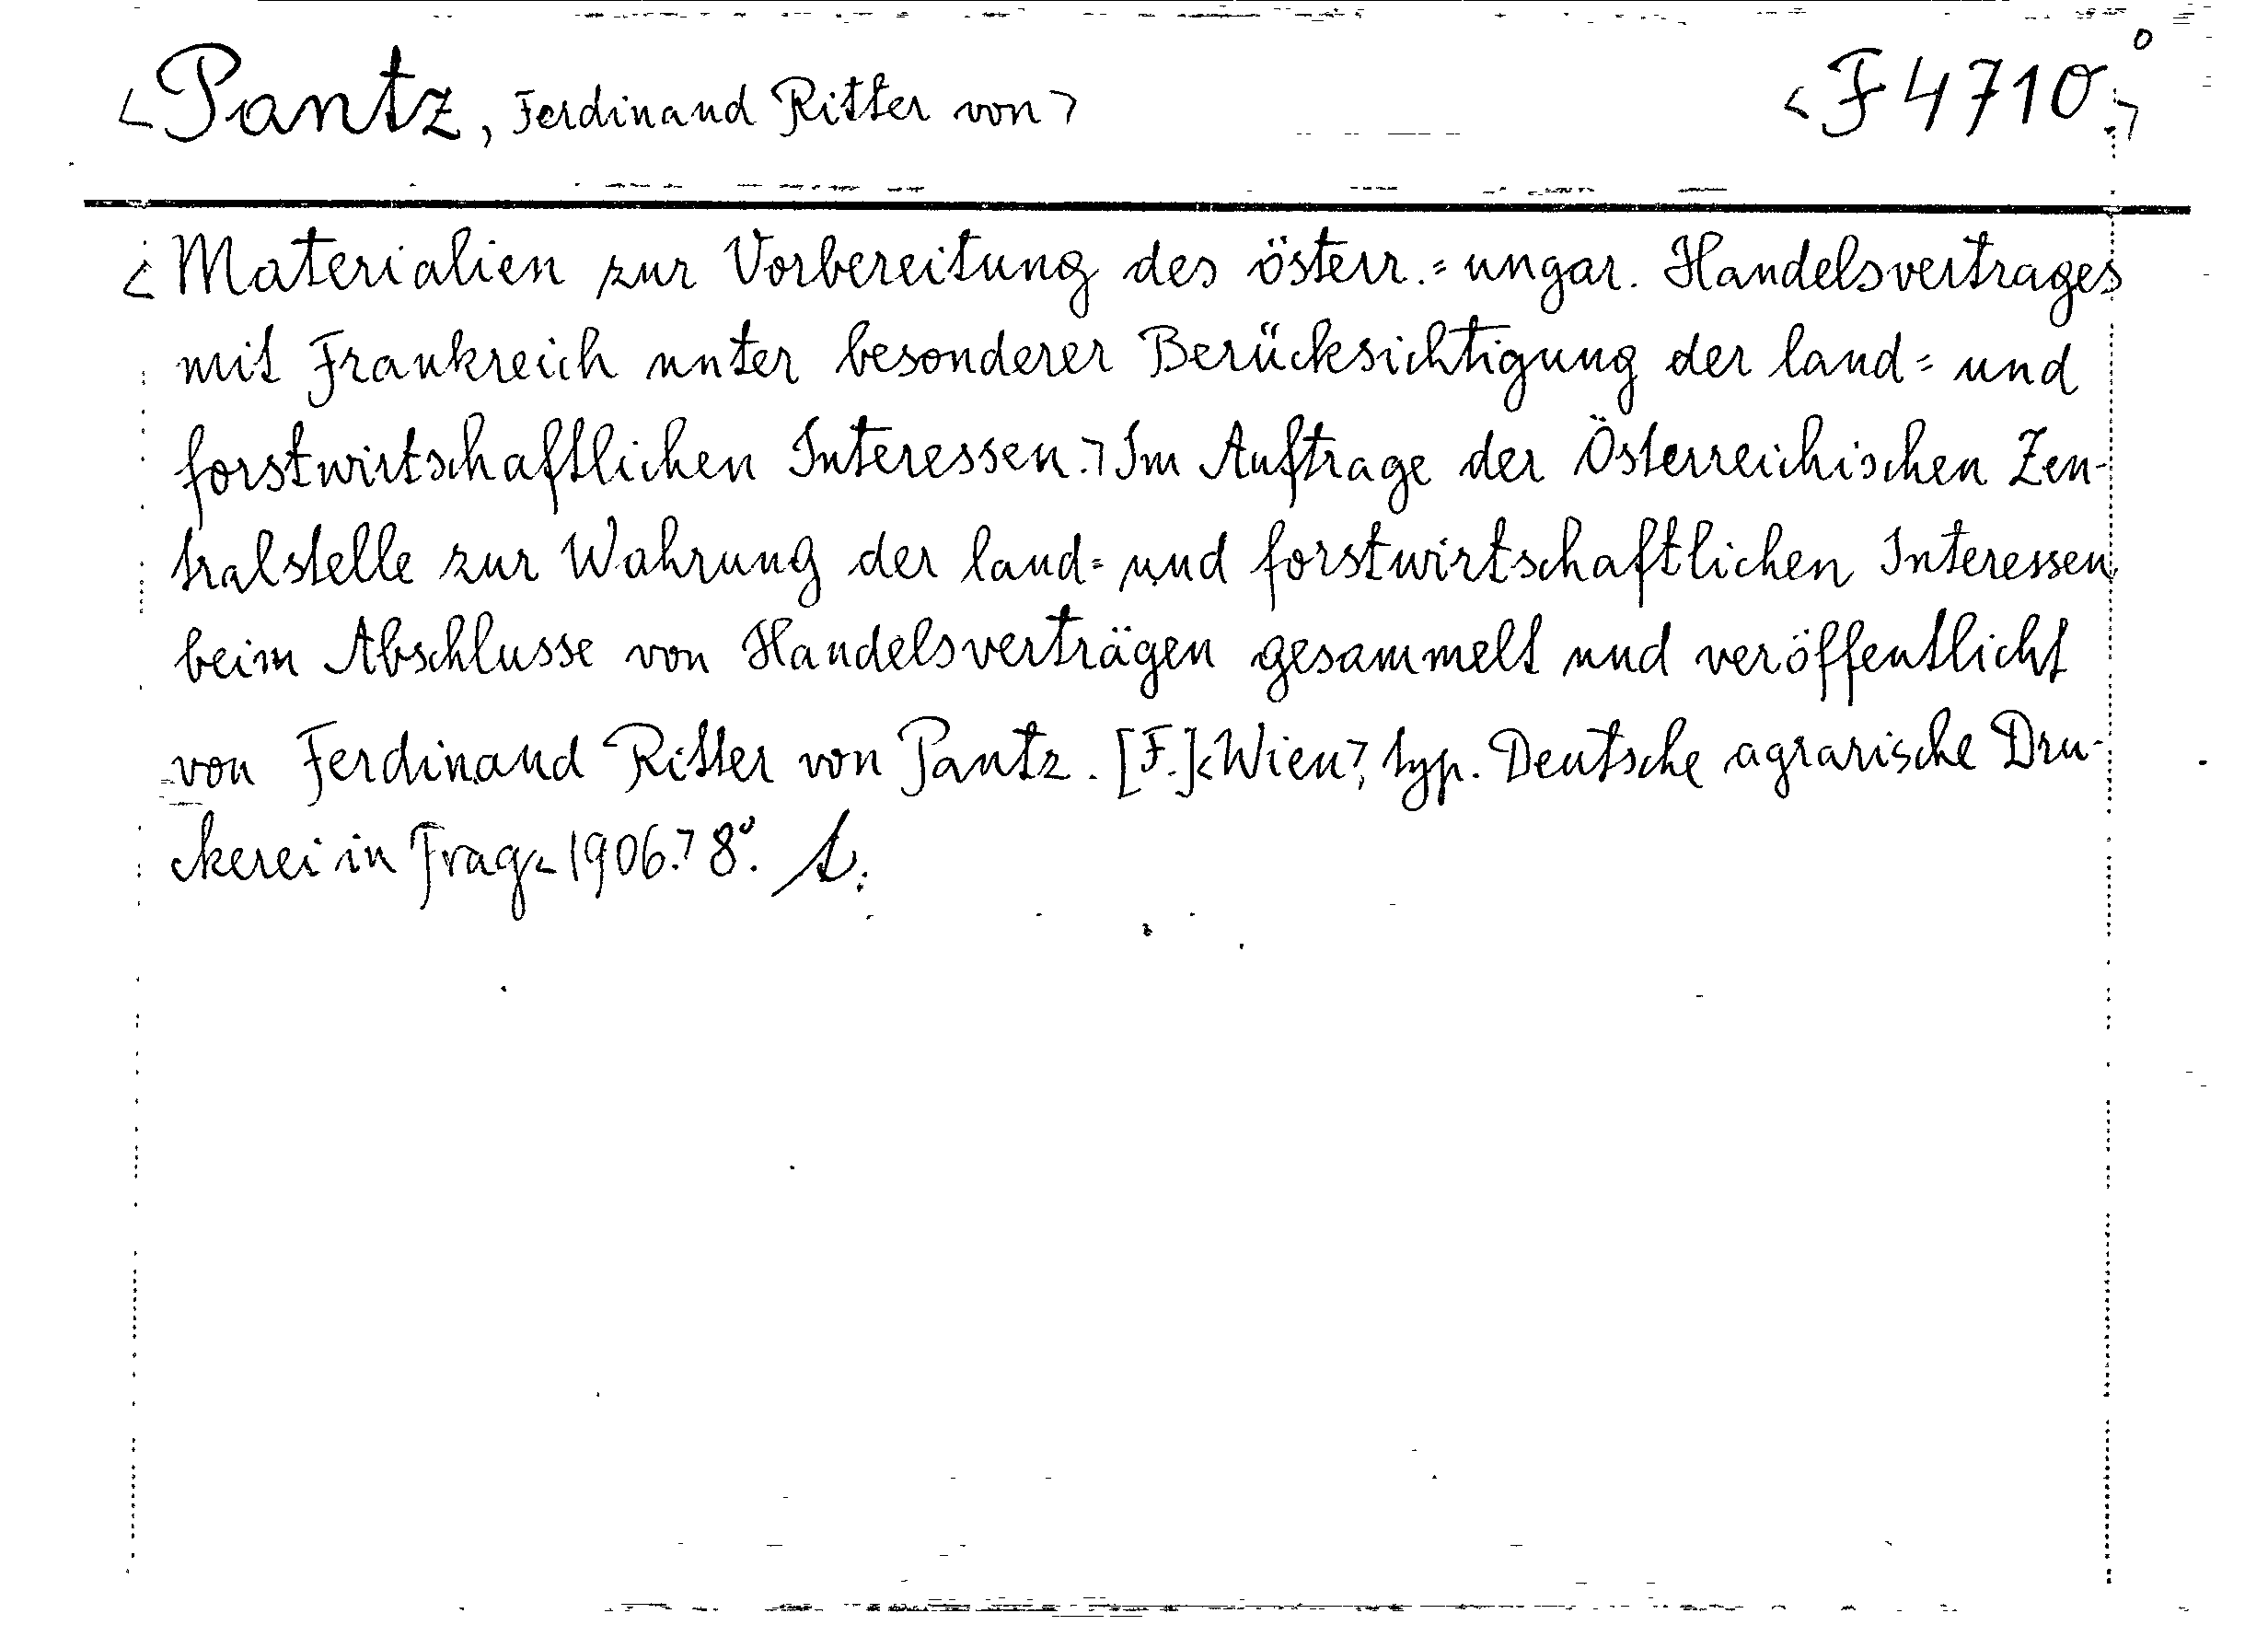 <Pantz, Ferdinand Ritter von>
<F 4710.>°
<Materialien zur Vorbereitung des österr.=ungar. Handelsvertrages
mit Frankreich unter besonderer Berücksichtigung der land= und
forstwirtschaftlichen Interessen.> Im Auftrage der Österreichischen Zen-
tralstelle zur Wahrung der land= und forstwirtschaftlichen Interessen
beim Abschlusse von Handelsverträgen gesammelt und veröffentlicht
von Ferdinand Ritter von Pantz. [F.] <Wien>, typ. Deutsche agrarische Dru-
ckerei in Prag <1906.> 8°.